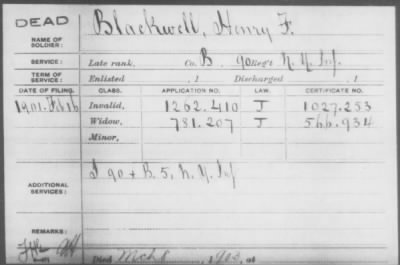 DEAD
NAME OF SOLDIER: Blackwell, Henry F.
SERVICE: Late rank, Co. B. 90 Reg't N. Y. Inf.
TERM OF SERVICE: Enlisted , 1 Discharged , 1
DATE OF FILING. CLASS. APPLICATION NO. LAW. CERTIFICATE NO.
1901. Feb 16 Invalid, 1262.410 J 1027.253
Widow, 781.207 J 566.934
Minor,
ADDITIONAL SERVICES: I 90 + B. 5, N. Y. Inf
REMARKS:
Died Mch 6, 1903, at